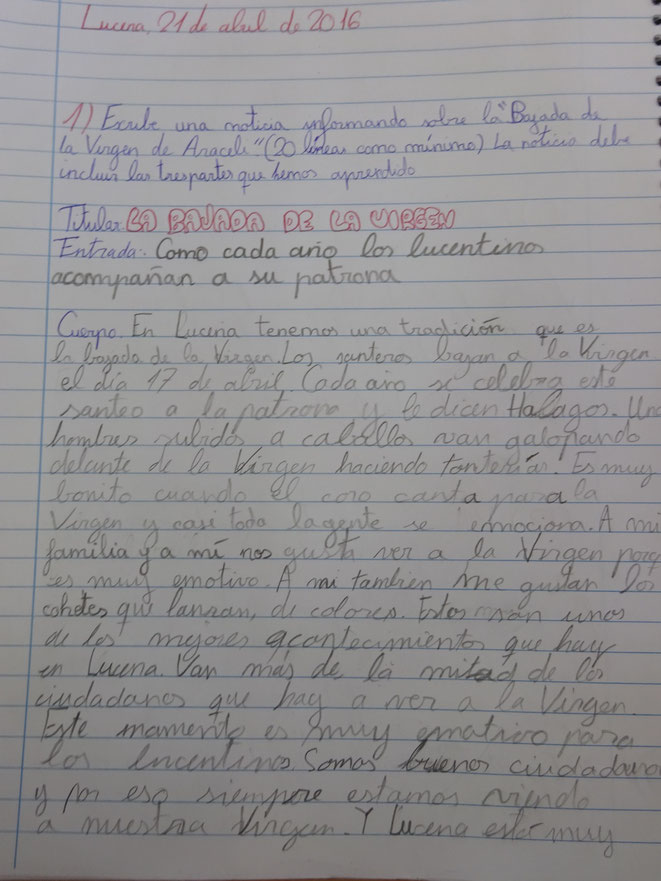 Lucena, 21 de abril de 2016
1) Escribe una noticia informando sobre la "Bajada de
la Virgen de Araceli" (20 líneas como mínimo) La noticia debe
incluir las tres partes que hemos aprendido
Titular: LA BAJADA DE LA VIRGEN
Entrada: Como cada año los lucentinos
acompañan a su patrona
Cuerpo. En Lucena tenemos una tradición que es
la bajada de la Virgen. Los santeros bajan a la Virgen
el día 17 de abril. Cada año se celebra este
santeo a la patrona y le dicen Halagos. Unos
hombres subidos a caballos van galopando
delante de la Virgen haciendo tonterías. Es muy
bonito cuando el coro canta para la
Virgen y casi toda la gente se emociona. A mi
familia y a mí nos gusta ver a la Virgen porq
es muy emotivo. A mi tambien me gustan los
cohetes que lanzan, de colores. Estos son unos
de los mejores acontecimientos que hay
en Lucena. Van más de la mitad de los
ciudadanos que hay a ver a la Virgen.
Este momento es muy emotivo para
los lucentinos. Somos buenos ciudadanos
y por eso siempre estamos viendo
a nuestra Virgen. Y Lucena está muy